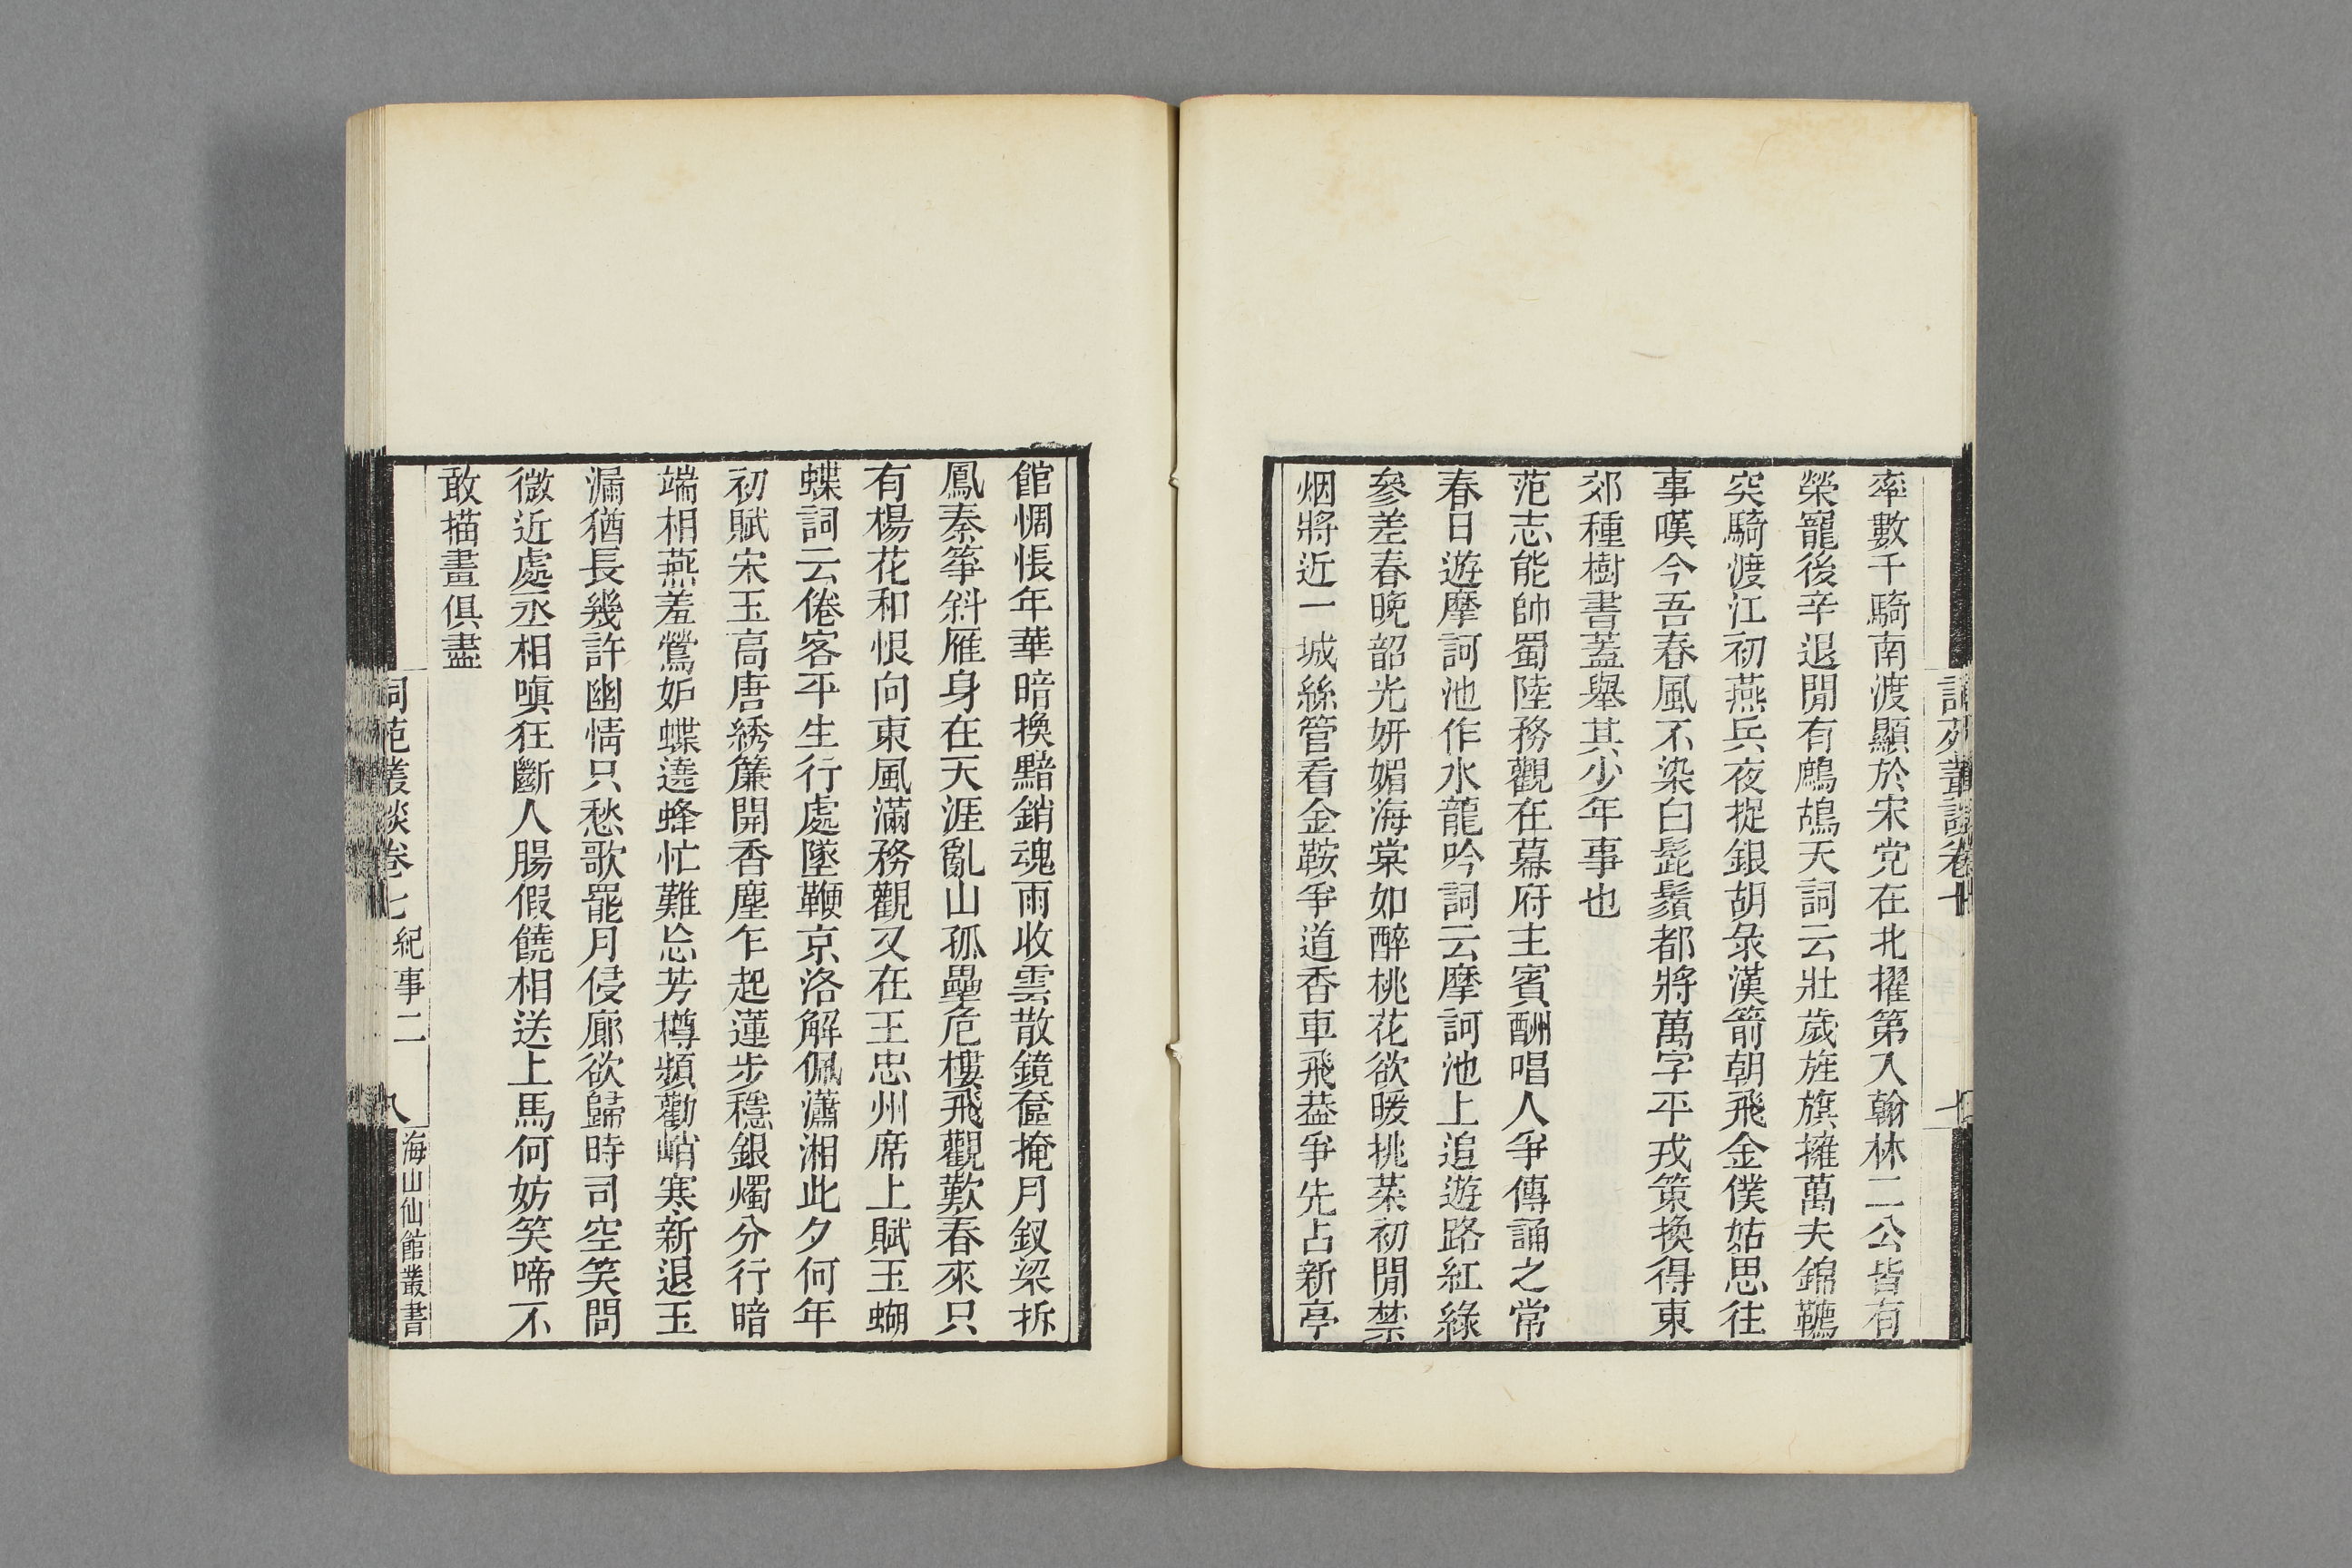 率數千騎南渡顯於宋党在北擢第入翰林二公皆有
榮寵後辛退閒有鷓鴣天詞云壯歲旌旗擁萬夫錦韉
突騎渡江初燕兵夜捉銀胡䩮漢箭朝飛金僕姑思往
事嘆今吾春風不染白髭鬚都將萬字平戎策換得東
郊種樹書蓋舉其少年事也
范志能帥蜀陸務觀在幕府主賓酬唱人爭傳誦之常
春日遊摩訶池作水龍吟詞云摩訶池上追遊路紅綠
參差春晚韶光妍媚海棠如醉桃花欲暖挑菜初閒禁
烟將近一城絲管看金鞍爭道香車飛葢爭先占新亭
館惆悵年華暗換黯銷魂雨收雲散鏡奩掩月釵梁拆
鳳秦筝斜雁身在天涯亂山孤壘危樓飛觀歎春來只
有楊花和恨向東風滿務觀又在王忠州席上賦玉蝴
蝶詞云倦客平生行處墜鞭京洛解佩瀟湘此夕何年
初賦宋玉高唐綉簾開香塵乍起蓮步穩銀燭分行暗
端相燕羞鶯妒蝶遶蜂忙難忘芳樽頻勸峭寒新退玉
漏猶長幾許幽情只愁歌罷月侵廊欲歸時司空笑問
微近處丞相嗔狂斷人腸假饒相送上馬何妨笑啼不
敢描畫俱盡
詞苑叢談卷七 紀事二 八 海山仙館叢書